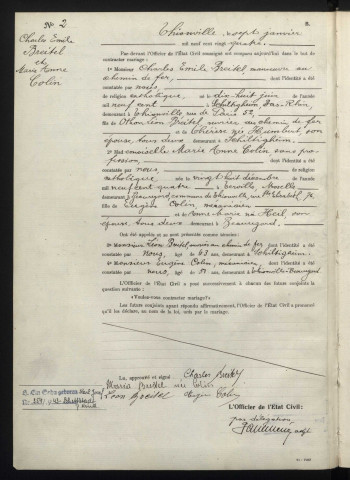 No 2
Charles Emile
Breitel
et
Marie Anne
Colin
Thionville, sept janvier
mil neuf cent vingt quatre.
Par devant l'Officier de l'État Civil soussigné ont comparu aujourd'hui dans le but de
contracter mariage:
1º Monsieur Charles Emile Breitel, manœuvre au
chemin de fer, dont l'identité a été
constatée par nous,
de religion catholique, né le dix-huit juin de l'année
mil neuf cent à Schiltigheim, Bas-Rhin,
demeurant à Thionville, rue de Paris 52,
fils de Othon Léon Breitel, ouvrier au chemin de fer
et de Thérèse née Humbert, son
épouse, tous deux demeurant à Schiltigheim.
2º Demoiselle Marie Anne Colin, sans pro-
fession, dont l'identité a été
constatée par nous, de religion
catholique, née le vingt huit décembre de l'année
mil neuf cent quatre à Terville, Moselle
demeurant à Beauregard, commune de Thionville,
fille de Eugène Colin, mécanicien
et de Anne Marie née Heil, son
épouse, tous deux demeurant à Beauregard.
Ont été appelés et se sont présentés comme témoins:
3º Monsieur Léon Breitel, au chemin de fer dont l'identité a été
constatée par nous, âgé de 63 ans, demeurant à Schiltigheim.
4º Monsieur Eugène Colin, mécanicien, dont l'identité a été
constatée par nous, âgé de 51 ans, demeurant à Thionville-Beauregard.
L'Officier de l'État Civil a posé successivement à chacun des futurs conjoints la question
suivante:
«Voulez-vous contracter mariage?»
Les futurs conjoints ayant répondu affirmativement, l'Officier de l'État Civil a prononcé
qu'il les déclare, au nom de la loi, unis par le mariage.
Lu, approuvé et signé
Charles Breitel
Maria Breitel née Colin
Léon Breitel Eugène Colin
L'Officier de l'État Civil:
par délégation